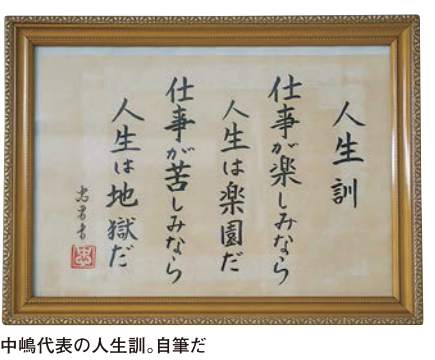 人生訓
仕事が楽しみなら
人生は楽園だ
仕事が苦しみなら
人生は地獄だ
中嶋代表の人生訓。自筆だ